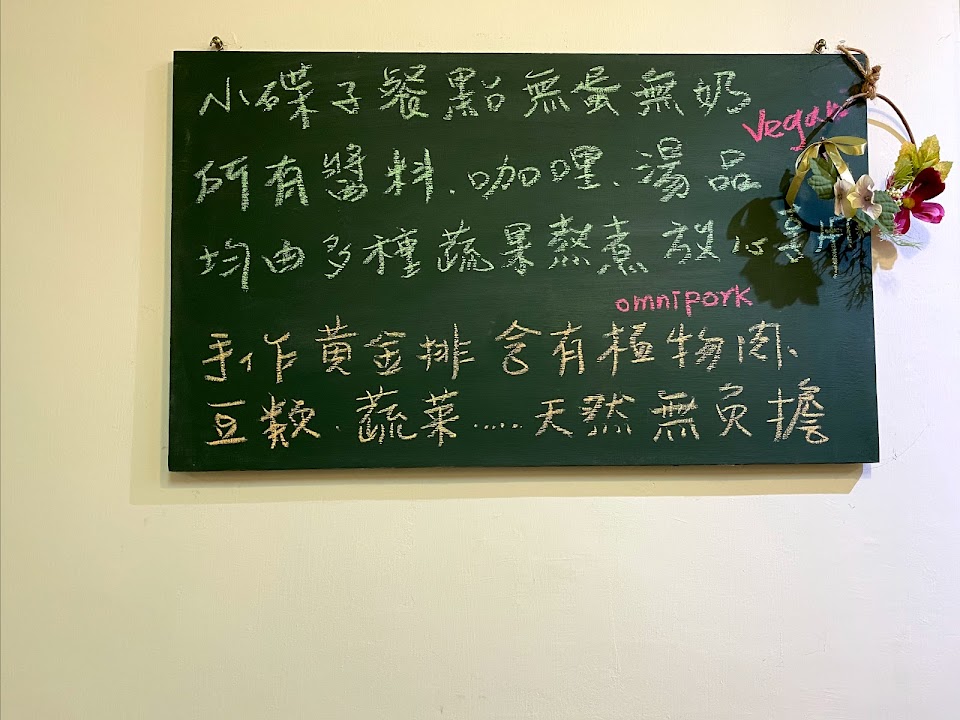 小碟子餐點無蛋無奶
Vegan
所有醬料.咖哩、湯品
均由多種蔬果熬煮 放心
omnipork
手作黃金排 含有植物肉、
豆類.蔬菜.....天然無負擔